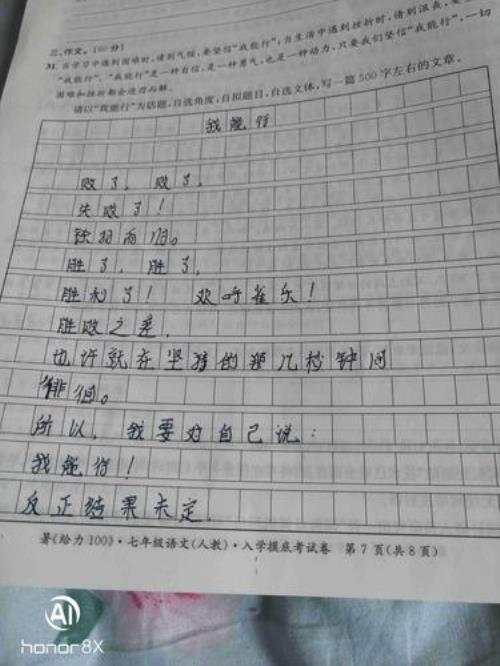 三、作文。(60分)
31. 当学习中遇到困难时,请别气馁,要坚信"我能行";当生活中遇到挫折时,请别沮丧,要
"我能行"。"我能行"是一种自信,是一种勇气,也是一种动力,只要我们坚信"我能行",一切
困难和挫折都会迎刃而解。
请以"我能行"为话题,自选角度,自拟题目,自选文体,写一篇500字左右的文章。
我能行
败了,败了,
失败了!
铩羽而归。
胜了,胜了,
胜利了! 欢呼雀乐!
胜败之差,
也许就在坚持的那几秒钟间
徘徊。
所以,我要对自己说:
我能行!
反正结果未定,
暑《给力100》·七年级语文(人教)·入学摸底考试卷 第7页(共8页)
AI
honor8X